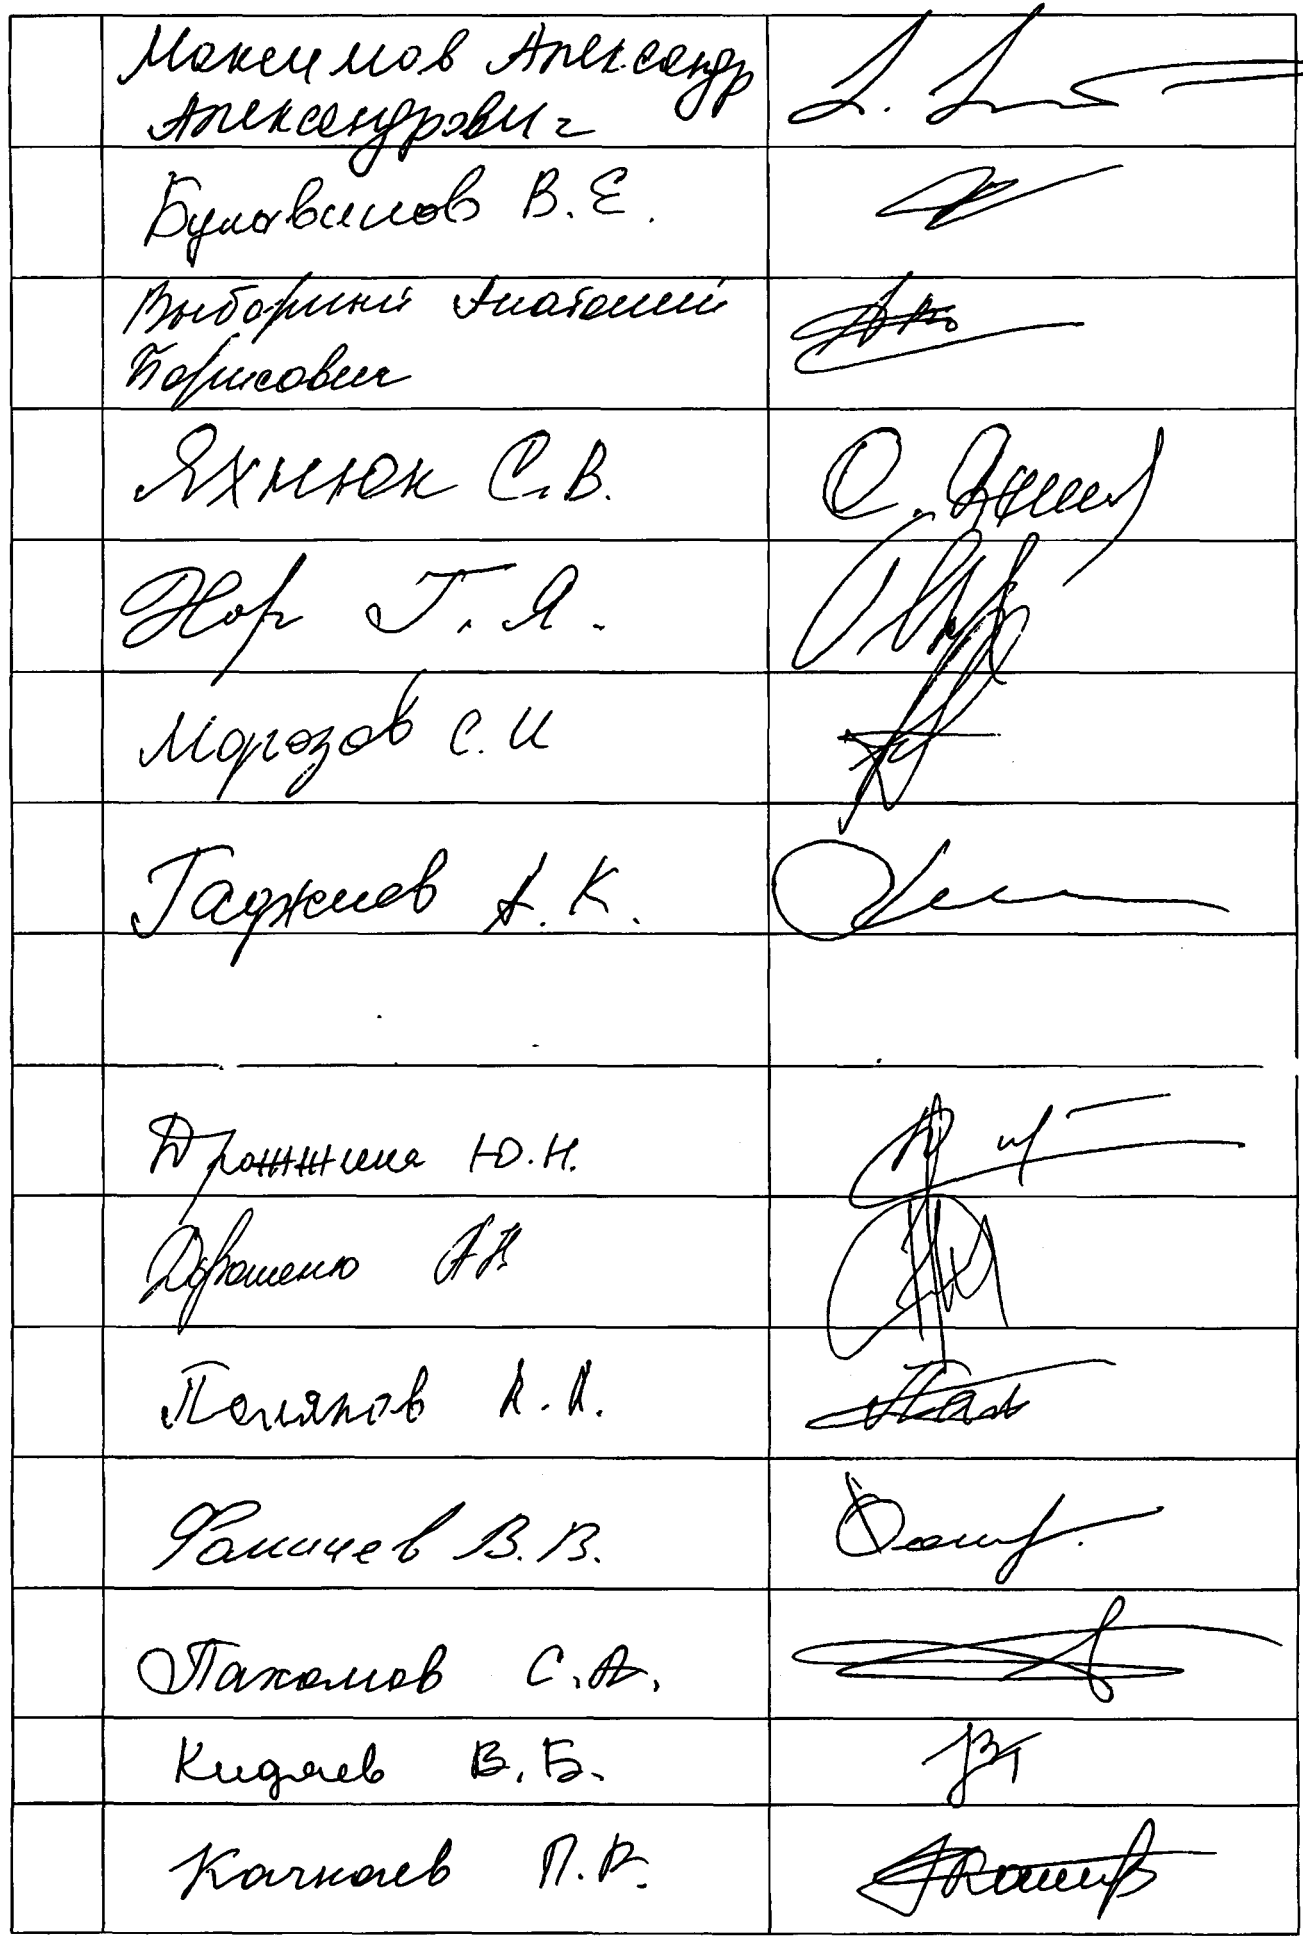 Максимов Александр
Александрович
Булавинов В.Е.
Выборный Анатолий
Борисович
Яхнюк С.В.
Нор Г.Я.
Морозов С.И
Гаджиев А.К.
Дрожжина Ю.Н.
Дорошенко А Н
Поляков А.А.
Фомичев В.В.
Пахомов С.А.
Кидяев В.Б.
Качкаев П.Р.